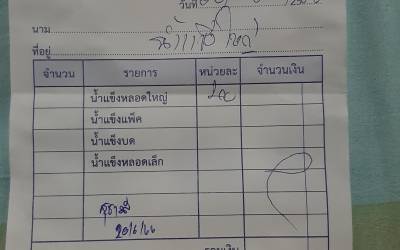 วันที่
นาม
ที่อยู่
จำนวน รายการ หน่วยละ จำนวนเงิน
น้ำแข็งหลอดใหญ่
น้ำแข็งแพ็ค
น้ำแข็งบด
น้ำแข็งหลอดเล็ก
20/6/66
รวมเงิน